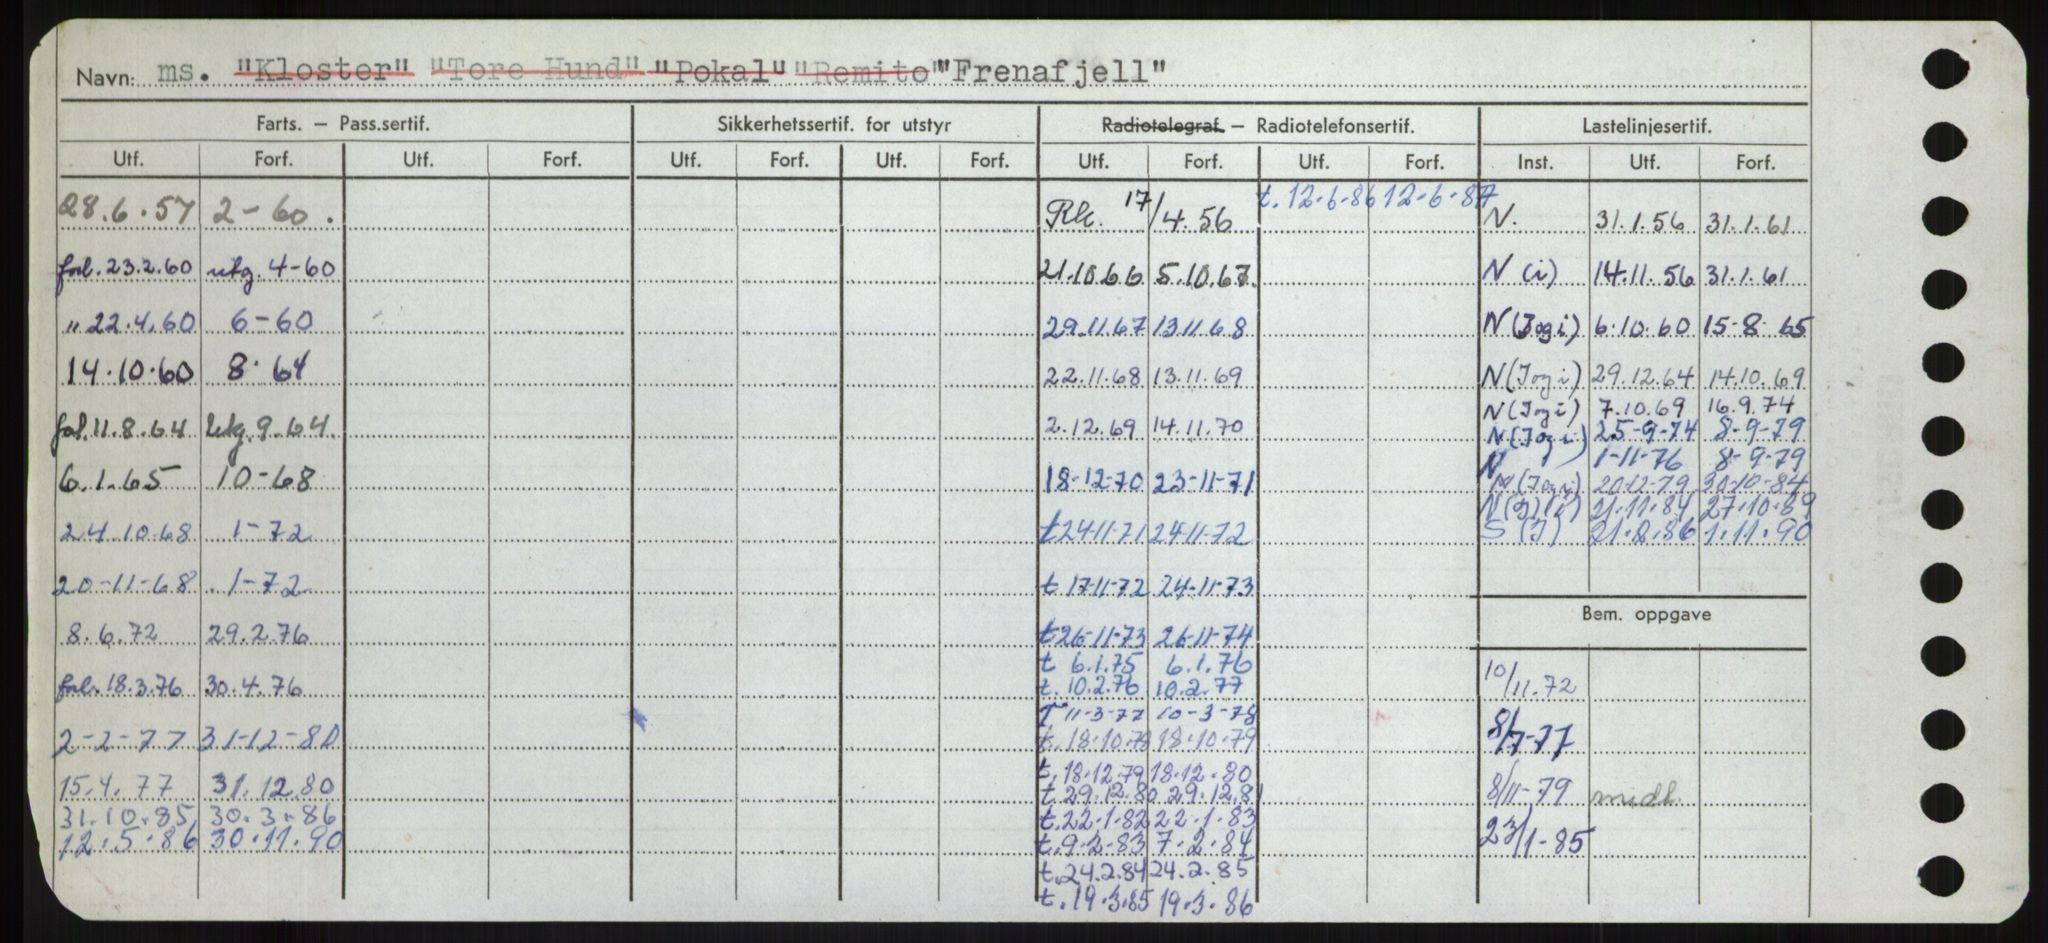 Navn: ms. "Kloster" "Tore Hund" "Pokal" "Remito" "Frenafjell"
Farts. – Pass.sertif. Sikkerhetssertif. for utstyr Radiotelegraf. – Radiotelefonsertif. Lastelinjesertif.
Utf. Forf. Utf. Forf. Utf. Forf. Utf. Forf. Utf. Forf. Utf. Forf. Inst. Utf. Forf.
28.6.57 2-60. Rk. 17/4.56 t. 12-6-86 12-6-87 N. 31.1.56 31.1.61
forl. 23.2.60 utg. 4-60 21.10.66 5.10.67. N (i) 14.11.56 31.1.61
" 22.4.60 6-60 29.11.67 13.11.68 N (J og i) 6.10.60 15-8-65
14.10.60 8.64 22.11.68 13.11.69 N (J og i) 29.12.64 14.10.69
N (J og i) 7.10.69 16.9.74
forl. 11.8.64 utg. 9.64. 2.12.69 14.11.70 N (J og i) 25-9-74 8-9-79
N 1-11-76 8-9-79
6.1.65 10-68 18-12-70 23-11-71 N (J og i) 20-12-79 30-10-84
N (J) (i) 21.11.84 27.10.89
24.10.68 1-72 t 24-11-71 24-11-72 S (J) 21.8.86 1.11.90
20-11-68 1-72 t. 17-11-72 24-11-73
Bem. oppgave
8.6.72 29.2.76 t. 26-11-73 26-11-74
t 6.1.75 6.1.76
forl. 18.3.76 30.4.76 t. 10.2.76 10.2.77 10/11.72
T 11-3-77 10-3-78
2-2-77 31-12-80 t. 18.10.78 18.10.79 8/7-77
15.4.77 31.12.80 t. 18.12.79 18.12.80
t. 29.12.80 29.12.81 8/11-79 midl.
31.10.85 30.3.86 t. 22.1.82 22.1.83
12.5.86 30.11.90 t. 9-2-83 7.2.84 23/1-85
t. 24.2.84 24.2.85
t. 19.3.85 19.3.86